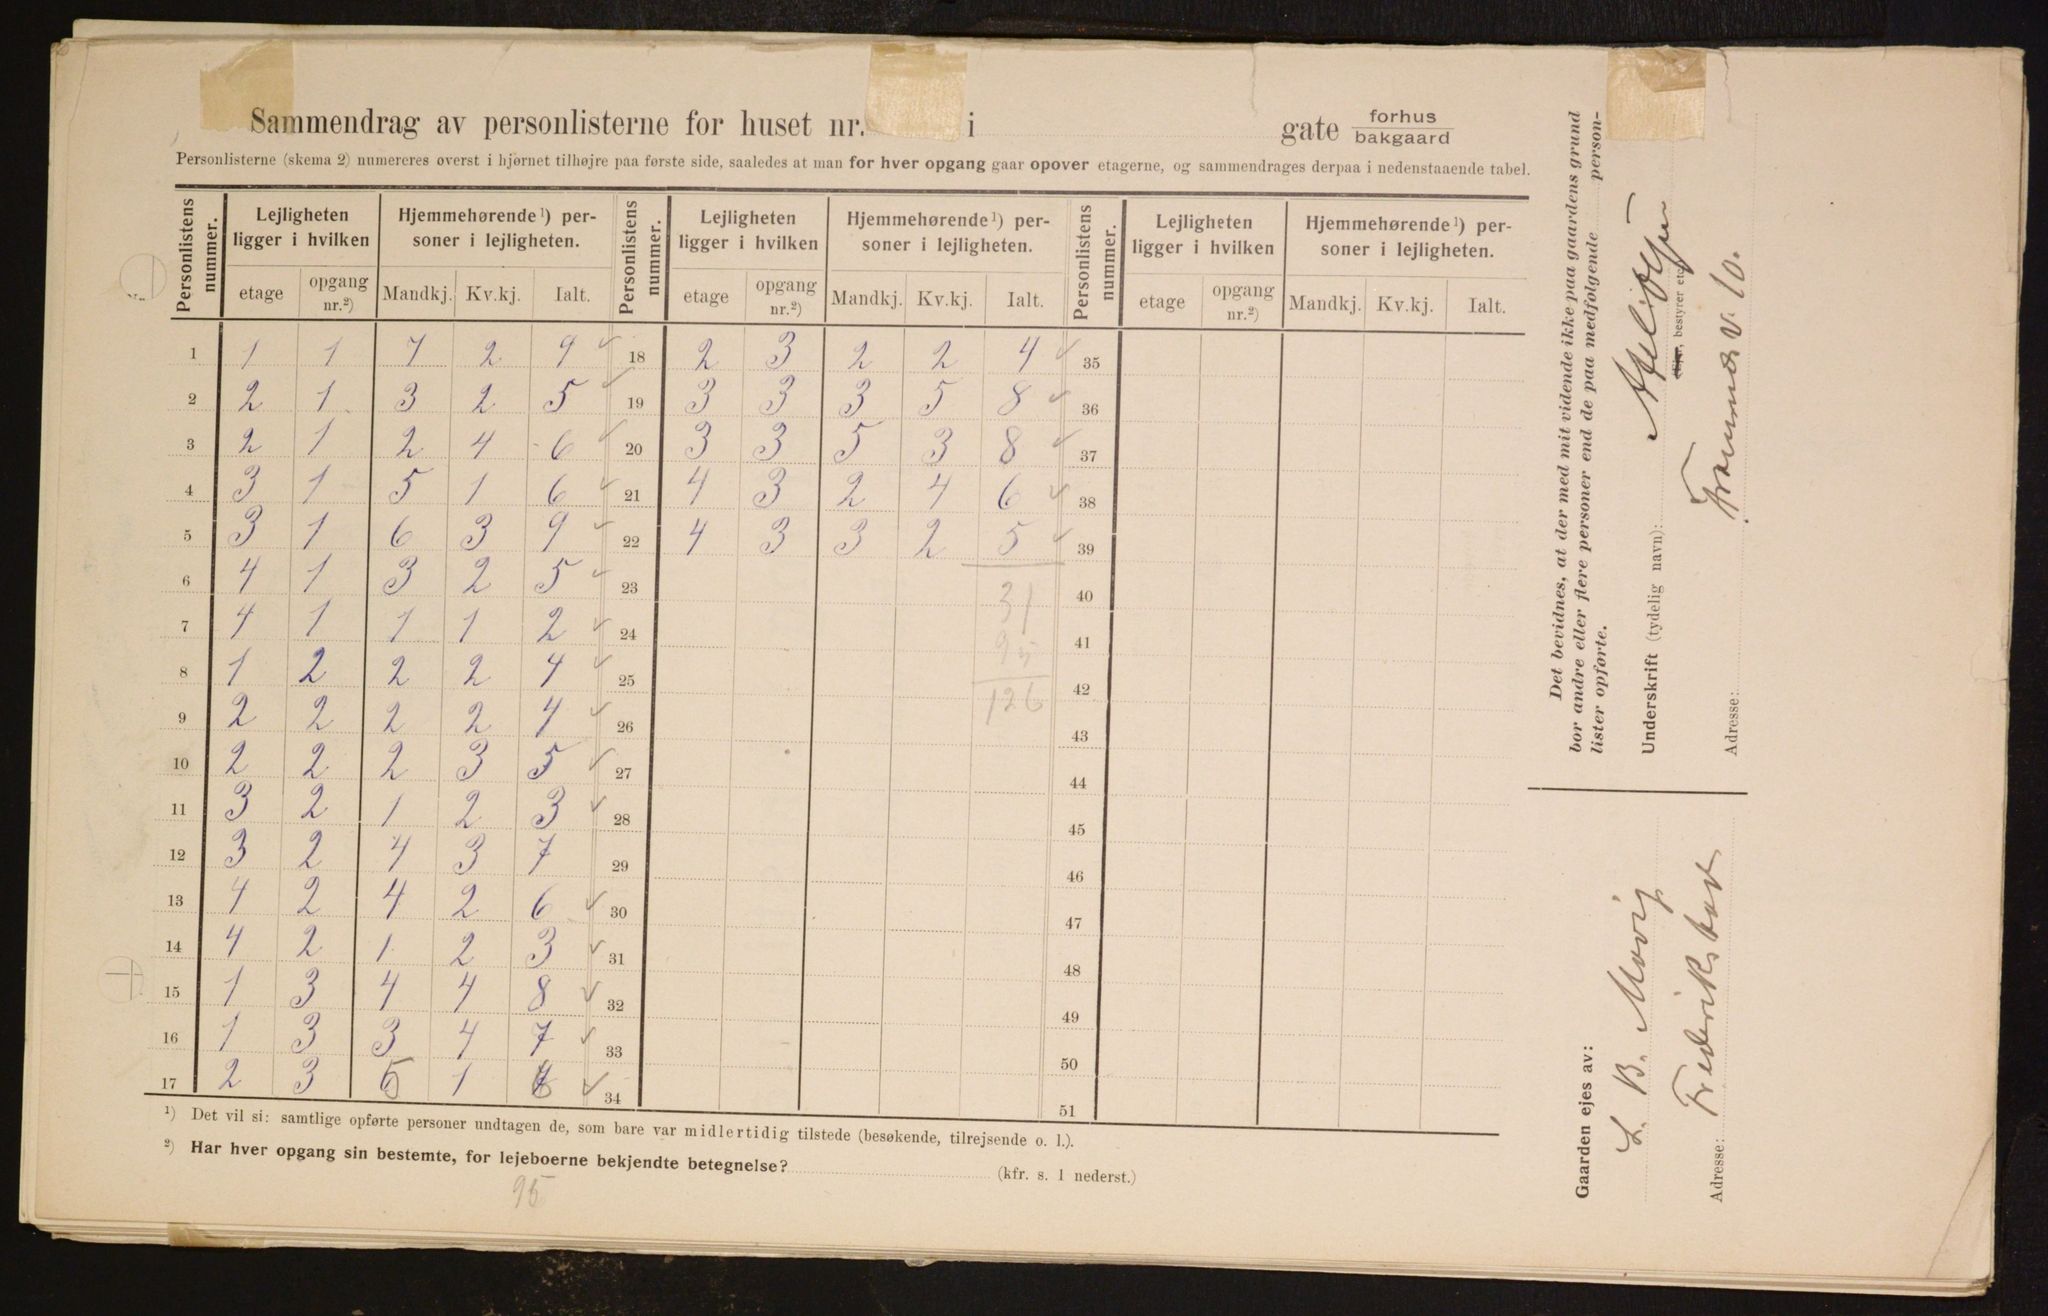 Sammendrag av personlisterne for huset nr. i gate forhus bakgaard
Personlisterne (skema 2) numereres øverst i hjørnet tilhøjre paa første side, saaledes at man for hver opgang gaar opover etagerne, og sammendrages derpaa i nedenstaaende tabel.
Personlistens nummer. Lejligheten ligger i hvilken Hjemmehørende ¹) personer i lejligheten. Personlistens nummer. Lejligheten ligger i hvilken Hjemmehørende ¹) personer i lejligheten. Personlistens nummer. Lejligheten ligger i hvilken Hjemmehørende ¹) personer i lejligheten.
etage opgang nr.²) Mandkj. Kv.kj. Ialt. etage opgang nr.²) Mandkj. Kv.kj. Ialt. etage opgang nr.²) Mandkj. Kv.kj. Ialt.
1 1 1 7 2 9 ✓ 18 2 3 2 2 4 ✓ 35
2 2 1 3 2 5 ✓ 19 3 3 3 5 8 ✓ 36
3 2 1 2 4 6 ✓ 20 3 3 5 3 8 ✓ 37
4 3 1 5 1 6 ✓ 21 4 3 2 4 6 ✓ 38
5 3 1 6 3 9 ✓ 22 4 3 3 2 5 ✓ 39
6 4 1 3 2 5 ✓ 23 31 40
7 4 1 1 1 2 ✓ 24 95 41
8 1 2 2 2 4 ✓ 25 126 42
9 2 2 2 2 4 ✓ 26 43
10 2 2 2 3 5 ✓ 27 44
11 3 2 1 2 3 ✓ 28 45
12 3 2 4 3 7 29 46
13 4 2 4 2 6 ✓ 30 47
14 4 2 1 2 3 ✓ 31 48
15 1 3 4 4 8 ✓ 32 49
16 1 3 3 4 7 ✓ 33 50
17 2 3 5 1 6 ✓ 34 51
¹) Det vil si: samtlige opførte personer undtagen de, som bare var midlertidig tilstede (besøkende, tilrejsende o. l.).
²) Har hver opgang sin bestemte, for lejeboerne bekjendte betegnelse? (kfr. s. 1 nederst.)
95
Det bevidnes, at der med mit vidende ikke paa gaardens grund
bor andre eller flere personer end de paa medfølgende person-
lister opførte.
Underskrift (tydelig navn):
(Ejer, bestyrer etc.)
Adresse: v. 10.
Gaarden ejes av: L. B. Movig
Adresse: Frederikstad